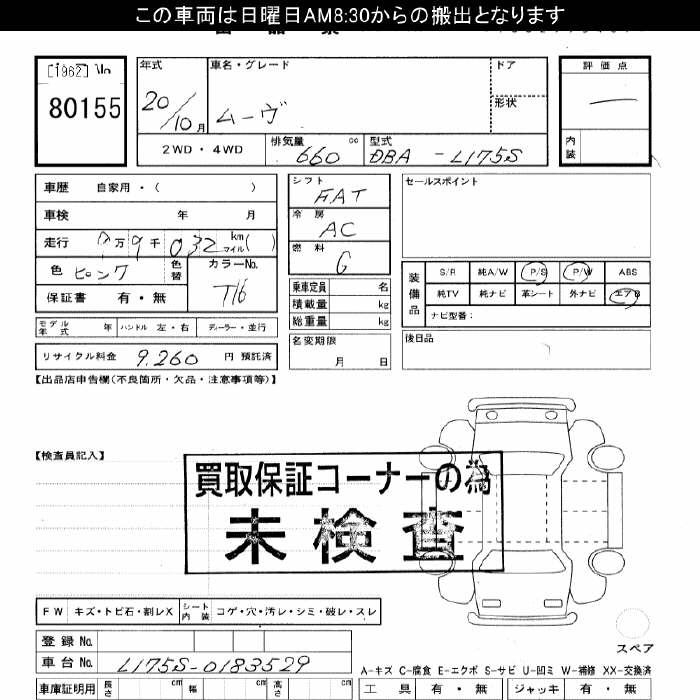 この車両は日曜日AM8:30からの搬出となります
[1962] No
80155
年式 車名・グレード ドア 評価点
20/10月 ムーヴ 形状
2WD・4WD 排気量 660 cc 型式 DBA-L175S 内装
車歴 自家用・( ) シフト FAT セールスポイント
車検 年 月 冷房 AC
走行 万9千032 km マイル ( ) 燃料 G
色 ピンク 色替 カラーNo. T16
保証書 有・無
乗車定員 名
積載量 kg
総重量 kg
装備品 S/R 純A/W P/S P/W ABS
純TV 純ナビ 革シート 外ナビ エアB
ナビ型番:
モデル年式 年 ハンドル 左・右 ディーラー・並行
名変期限 月 日 後日品
リサイクル料金 9,260 円 預託済
【出品店申告欄(不良箇所・欠品・注意事項等)】
【検査員記入】
買取保証コーナーの為
未検査
FW キズ・トビ石・割レX シート内装 コゲ・穴・汚レ・シミ・破レ・スレ
登録No.
スペア
車台No. L175S-0183529
A-キズ C-腐食 E-エクボ S-サビ U-凹ミ W-補修 XX-交換済
車庫証明用 長さ cm 幅 cm 高さ cm 工具 有・無 ジャッキ 有・無